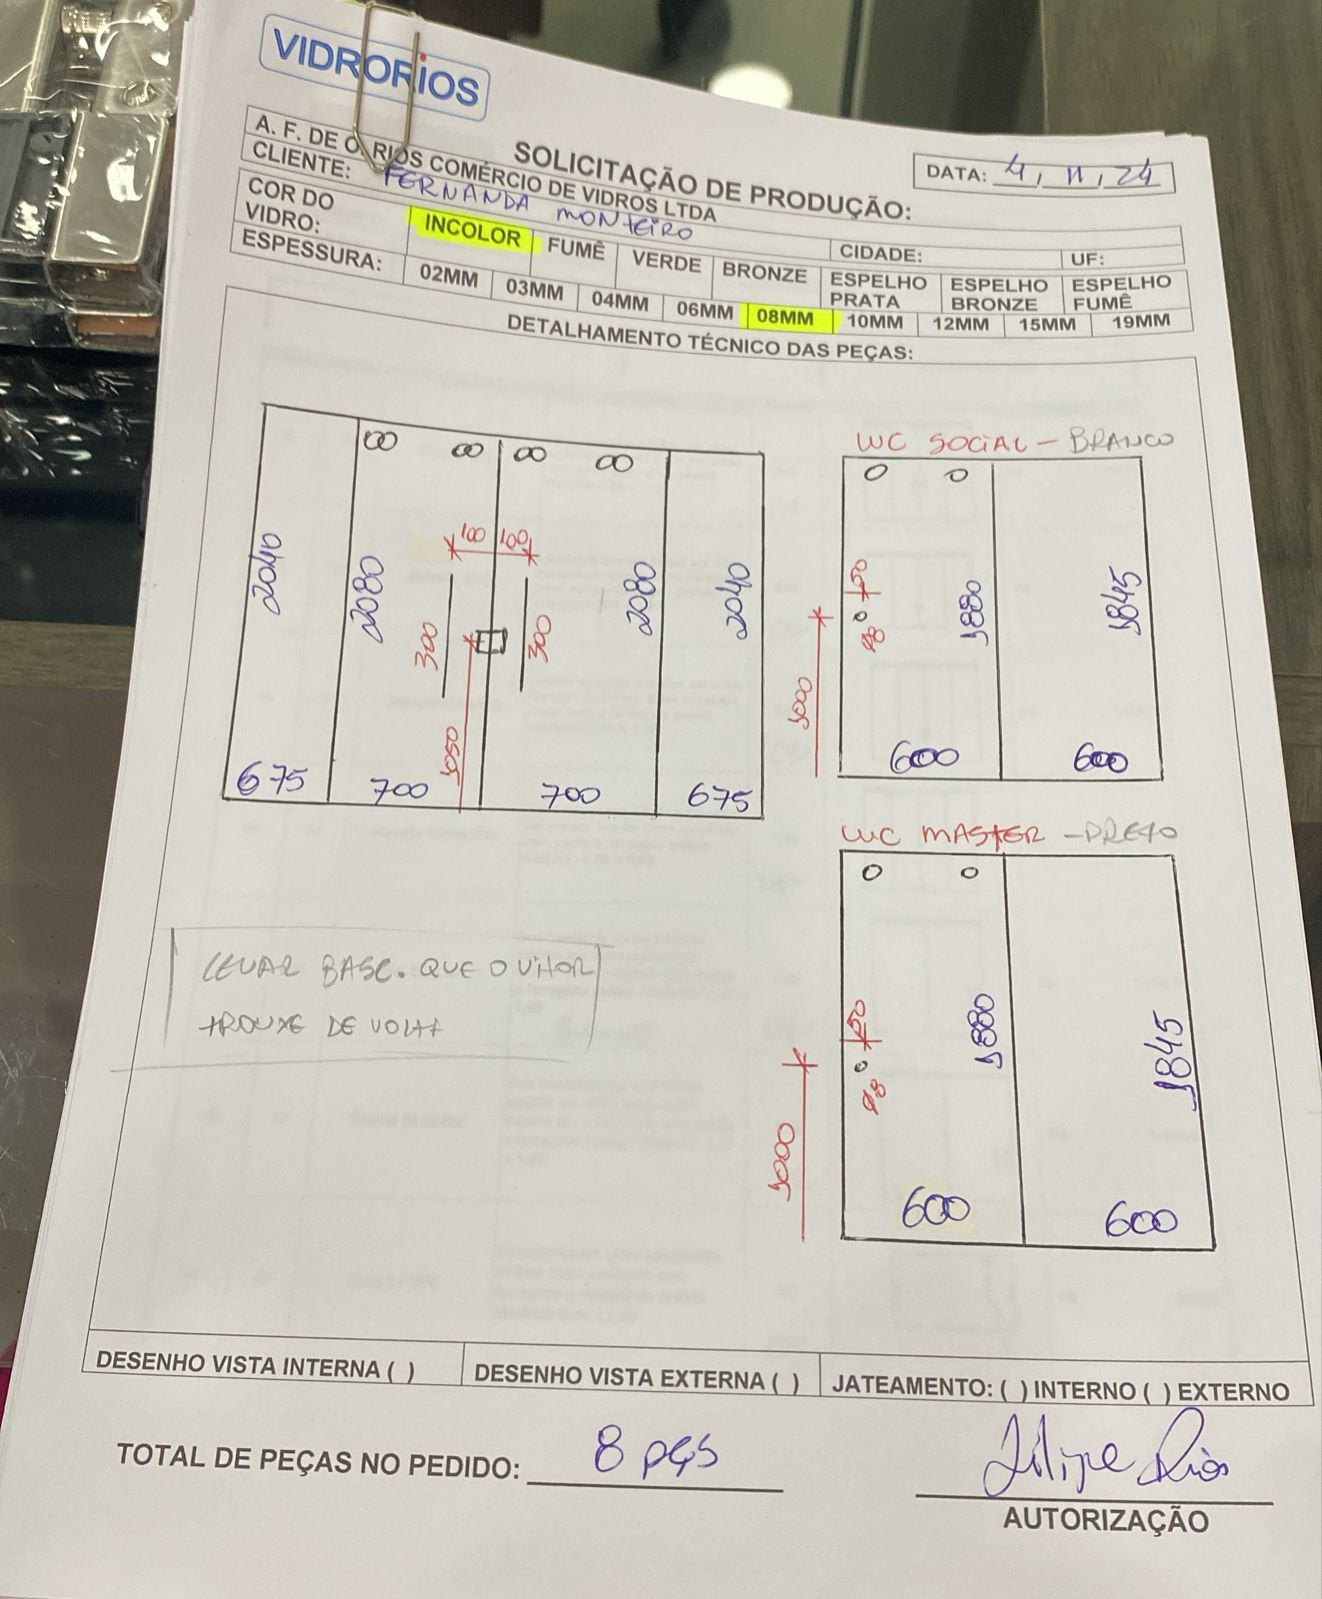 VIDRORIOS
SOLICITAÇÃO DE PRODUÇÃO:
DATA: 4, 11, 24
A. F. DE O. RIOS COMÉRCIO DE VIDROS LTDA
CLIENTE: FERNANDA MONTEIRO
CIDADE: UF:
COR DO VIDRO: INCOLOR FUMÊ VERDE BRONZE ESPELHO PRATA ESPELHO BRONZE ESPELHO FUMÊ
ESPESSURA: 02MM 03MM 04MM 06MM 08MM 10MM 12MM 15MM 19MM
DETALHAMENTO TÉCNICO DAS PEÇAS:
100 100
2040 2080 2080 2040
300 300
1050
675 700 700 675
WC SOCIAL - BRANCO
50
Ø8
1880 1845
1000
600 600
WC MASTER - PRETO
50
Ø8
1880 1845
1000
600 600
LEVAR BASC. QUE O VITOR
TROUXE DE VOLTA
DESENHO VISTA INTERNA ( ) DESENHO VISTA EXTERNA ( ) JATEAMENTO: ( ) INTERNO ( ) EXTERNO
TOTAL DE PEÇAS NO PEDIDO: 8 PÇS
Filipe Rios
AUTORIZAÇÃO